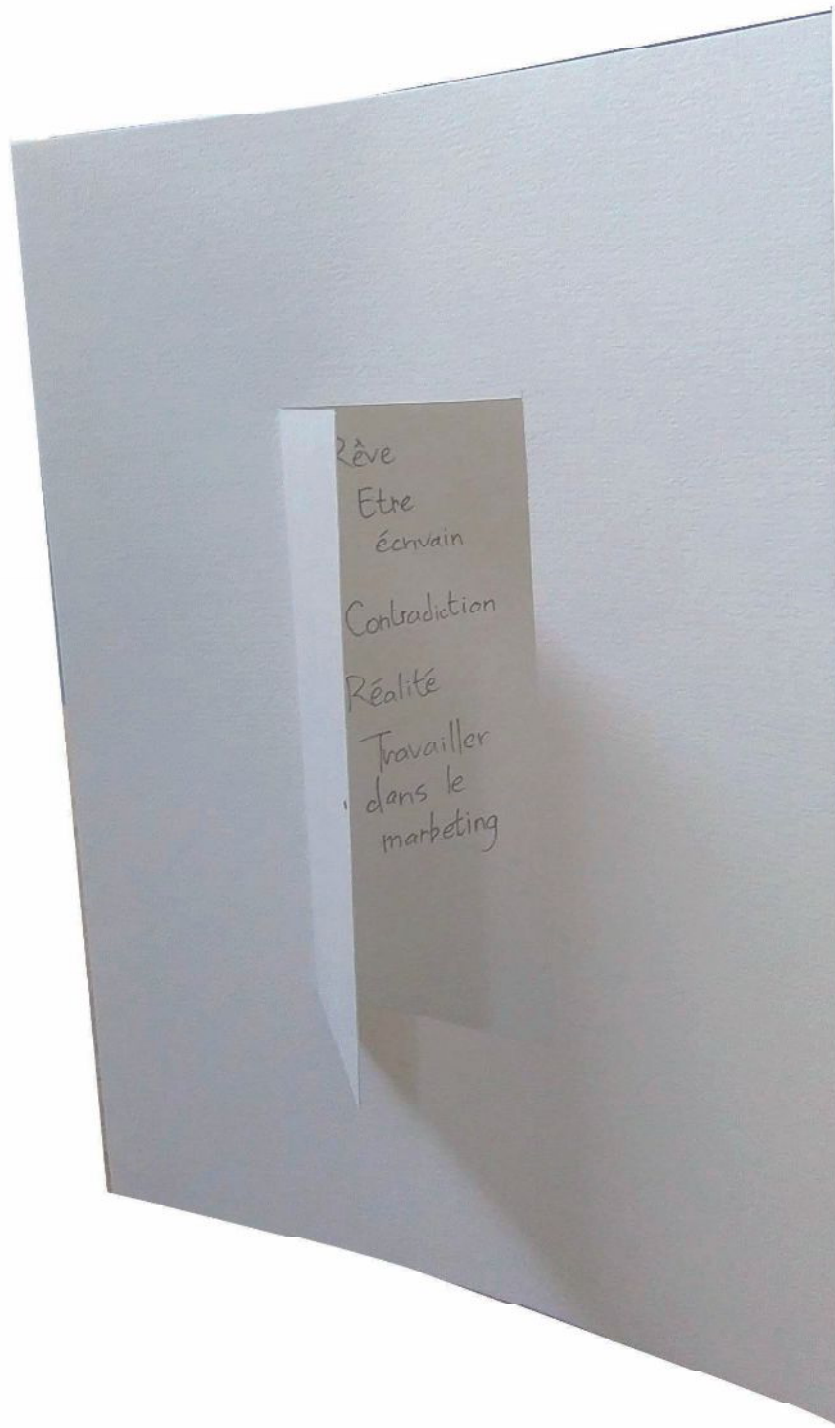 Rêve
Etre
écrivain
Contradiction
Réalité
Travailler
dans le
marketing